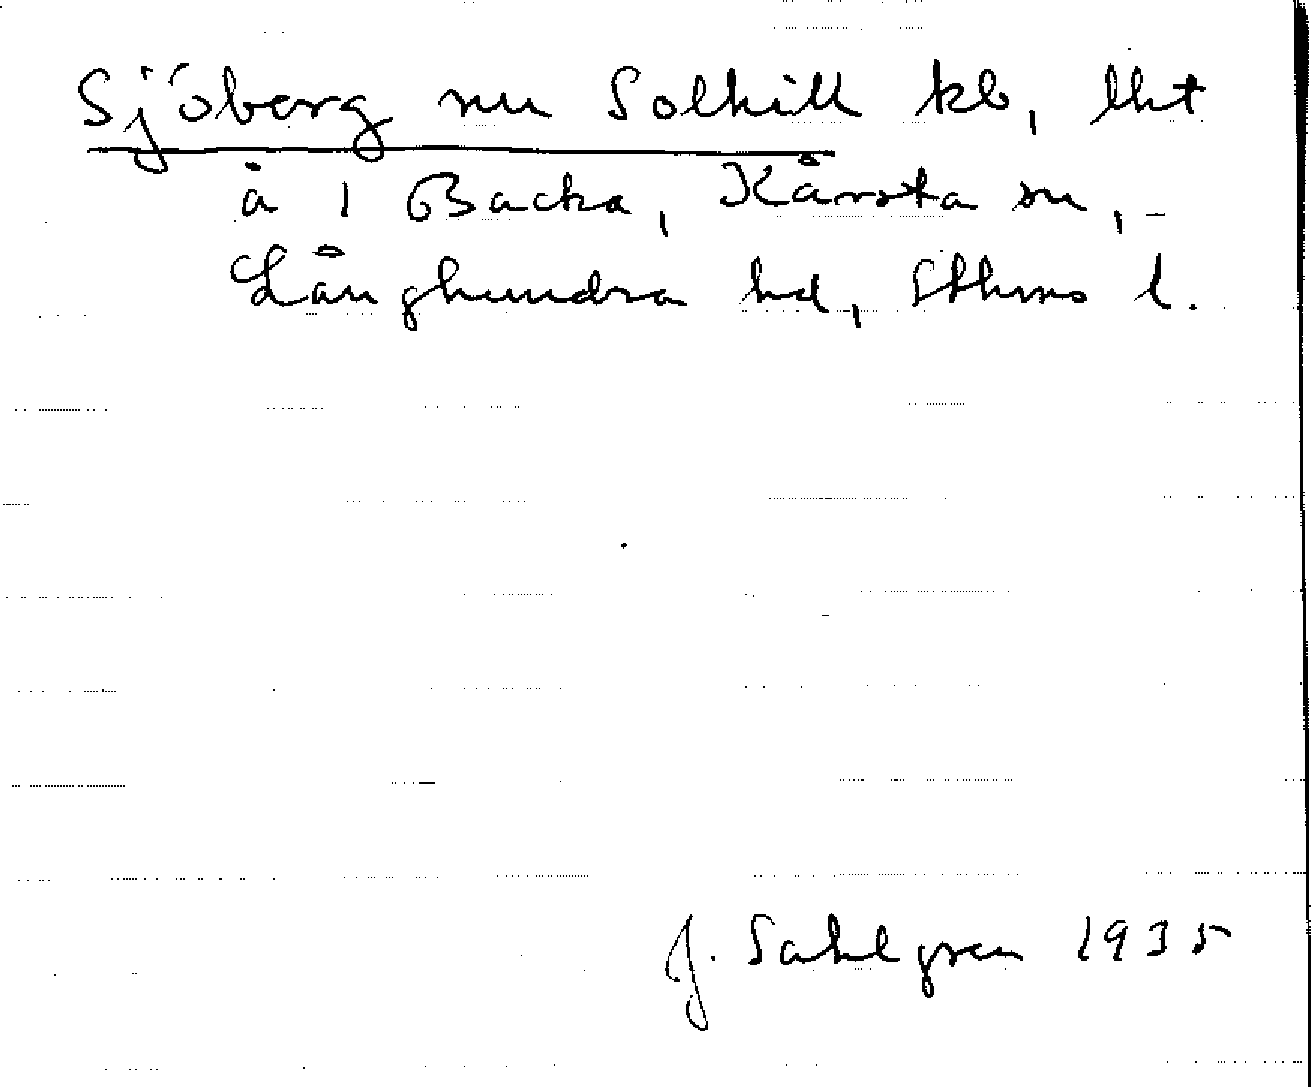 Sjöberg nu Solhill kb, lht
å 1 Backa, Kårsta sn,
Långhundra hd, Sthms l.
J. Sahlgren 1935